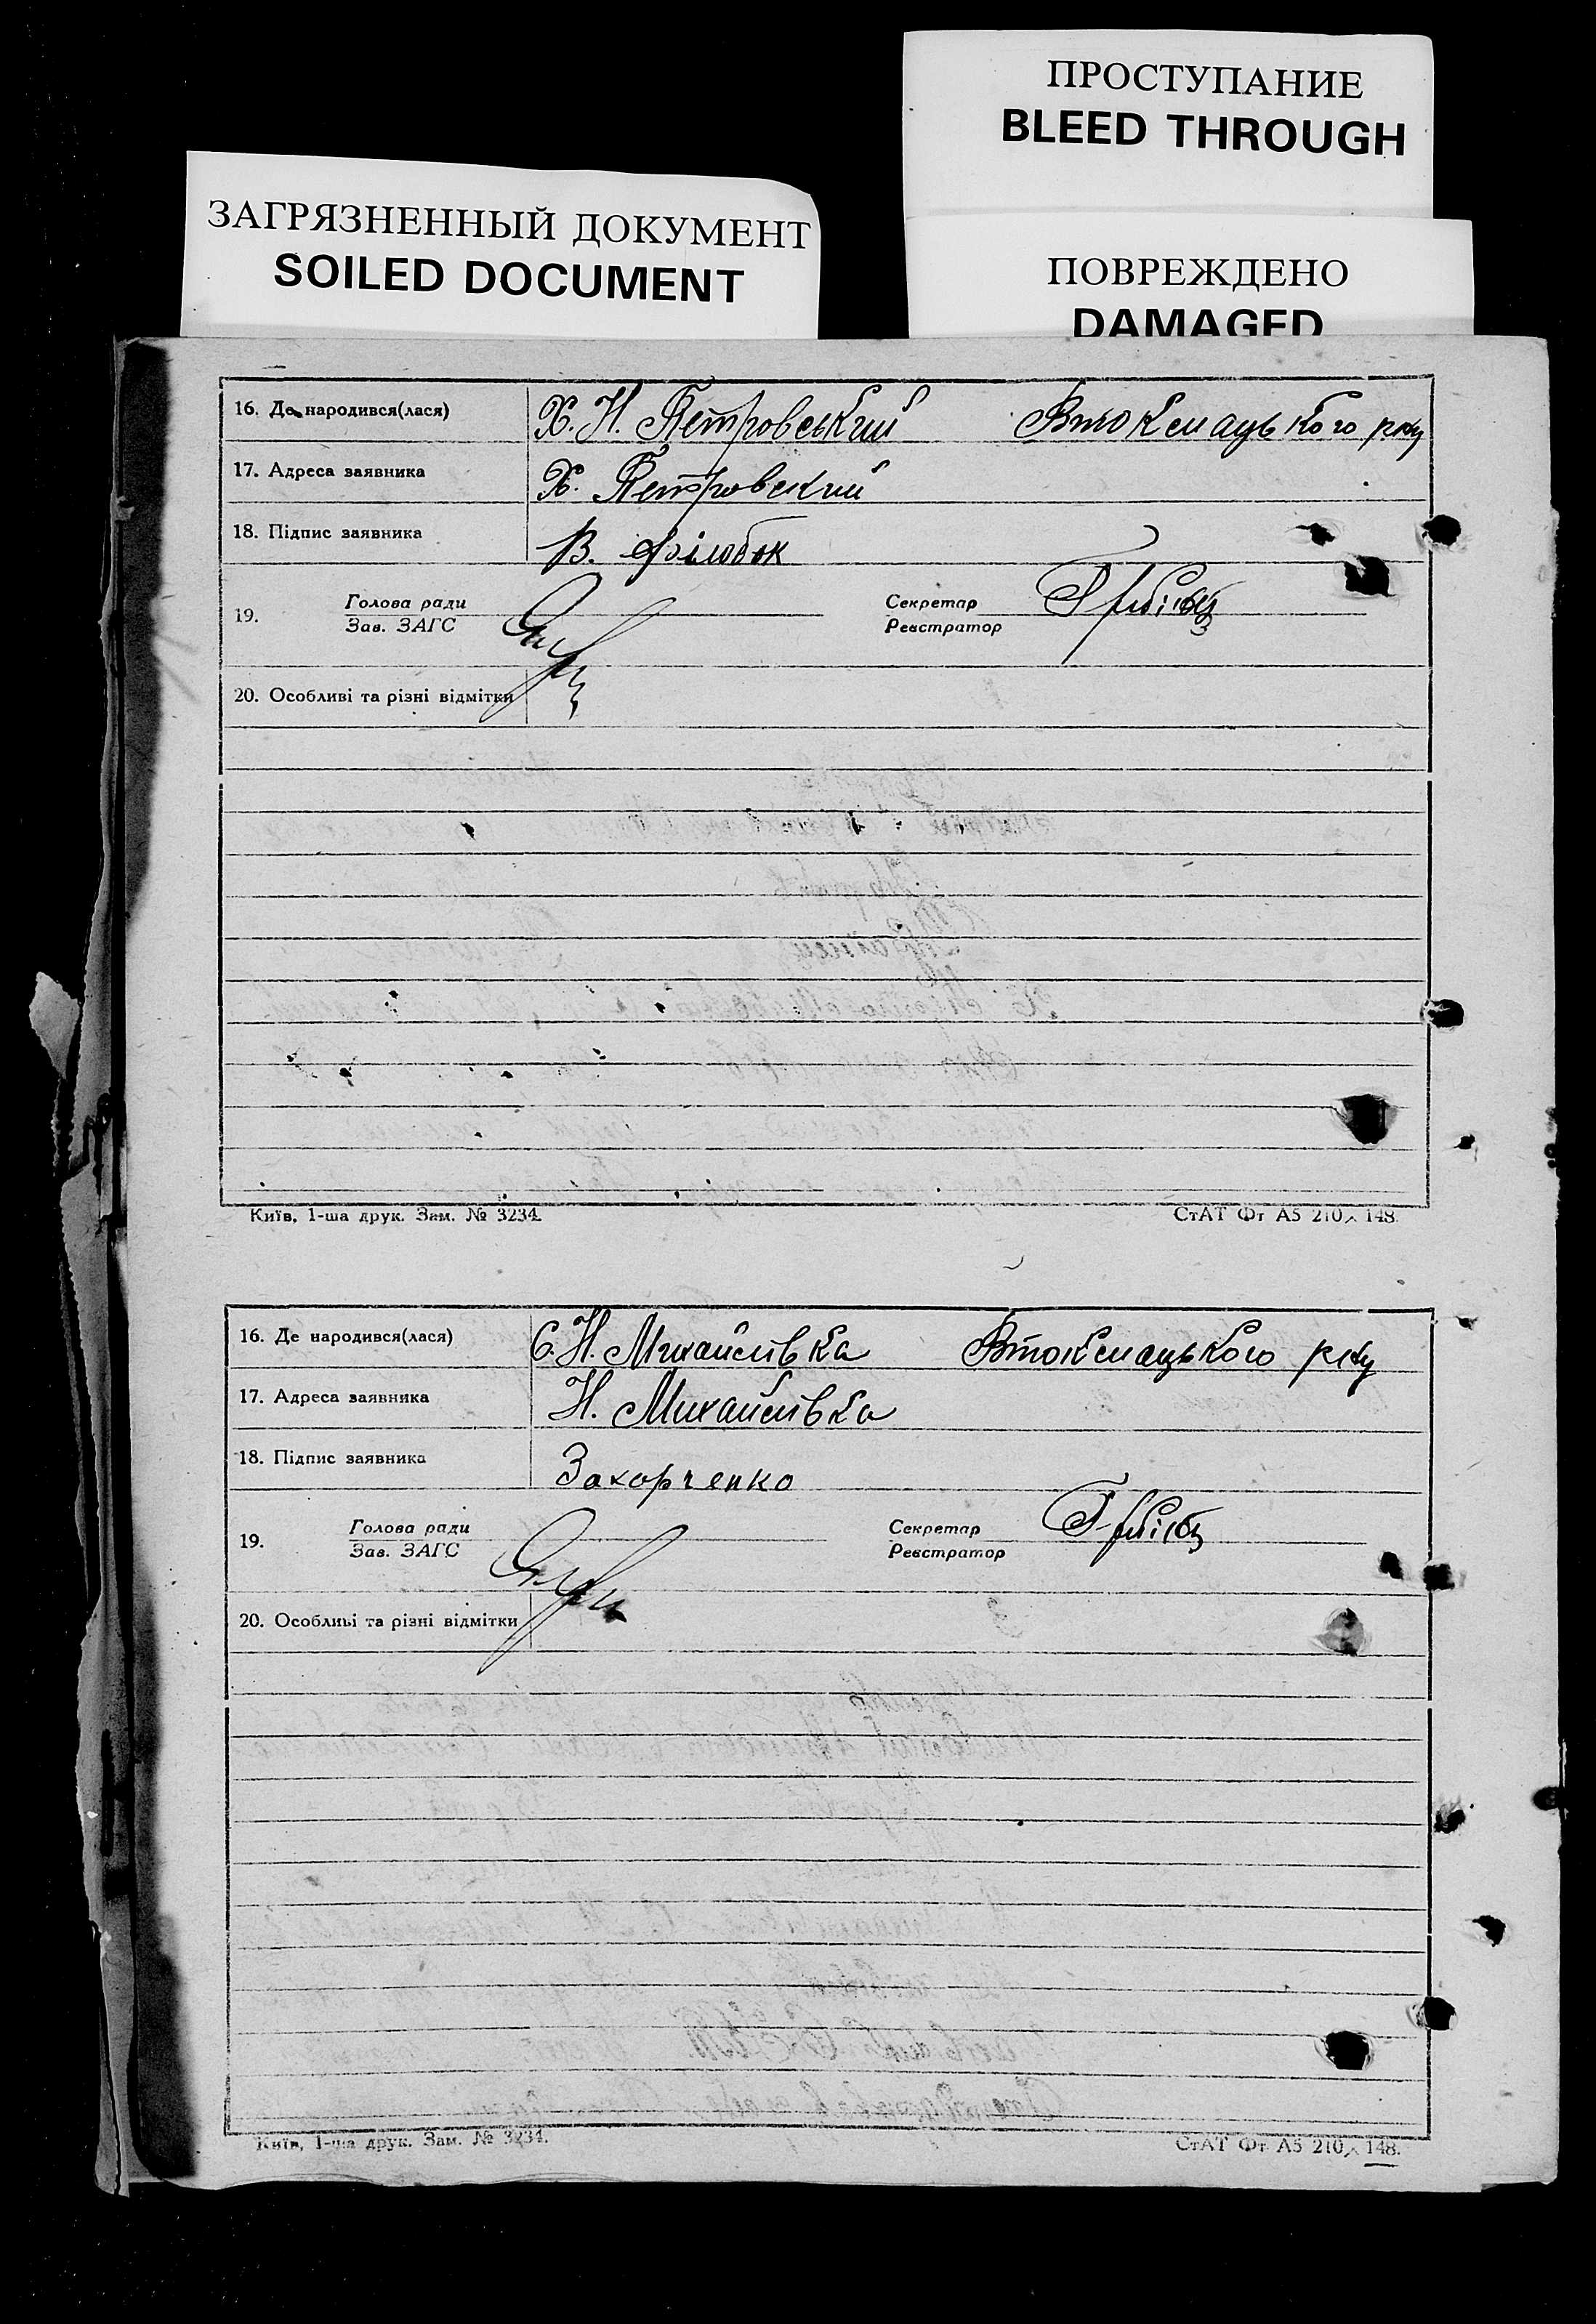 ПРОСТУПАНИЕ
BLEED THROUGH
ЗАГРЯЗНЕННЫЙ ДОКУМЕНТ
SOILED DOCUMENT
ПОВРЕЖДЕНО
DAMAGED
16. Де народився(лася) Х. Н. Петровський Втокмацького р-ну
17. Адреса заявника Х. Петровский
18. Підпис заявника В.
19. Голова ради Секретар
Зав. ЗАГС Реєстратор
20. Особливі та різні відмітки
Київ, 1-ша друк. Зам. № 3234. СтАТ Фт А5 210 × 148.
16. Де народився(лася) С. Н. Михайлівка Втокмацького р-ну
17. Адреса заявника Н. Михайлівка
18. Підпис заявника Захорченко
19. Голова ради Секретар
Зав. ЗАГС Реєстратор
20. Особливі та різні відмітки
Київ, 1-ша друк. Зам. № 3234. СтАТ Фт А5 210 × 148.